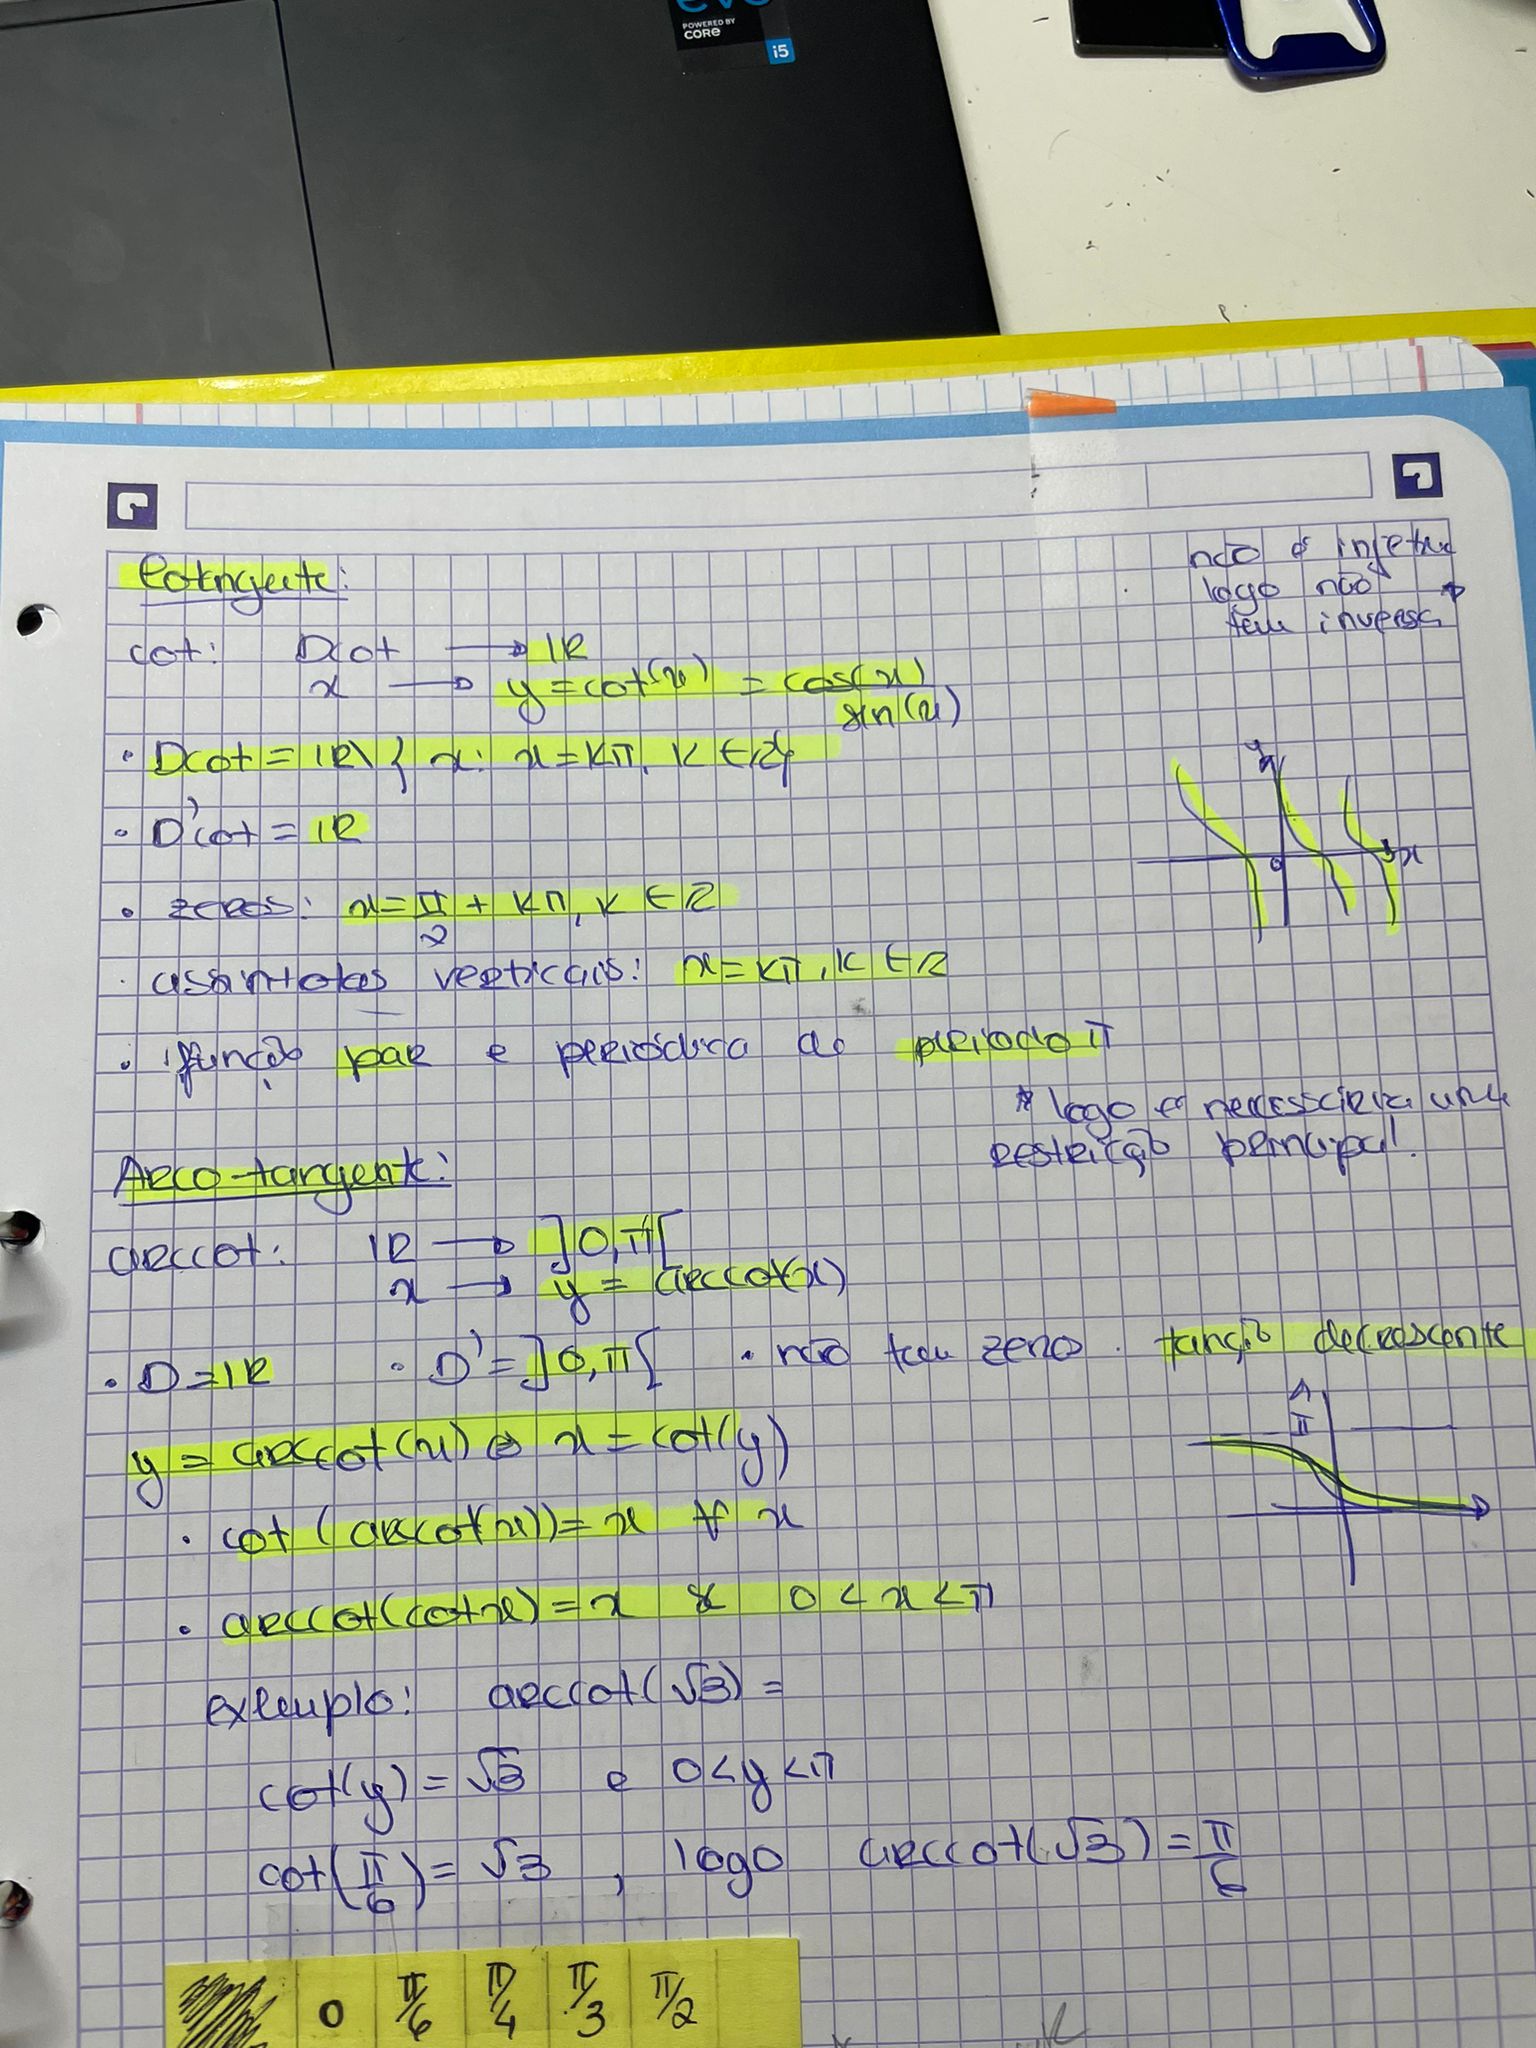 POWERED BY
CORE
i5
não é injetiva
logo não
tem inversa *
Cotangente:
cot: Dcot → IR
x → y = cot(x) = cos(x)
sin(x)
• Dcot = IR\{x: x = Kπ, K ∈ Z}
• D'cot = IR
• zeros: x = π/2 + Kπ, K ∈ Z
• assíntotas verticais: x = Kπ, K ∈ Z
• função par e periódica de período π
y
0
x
* logo é necessária uma
restrição principal!
Arco-tangente:
arccot: IR → ]0, π[
x → y = arccot(x)
• D = IR • D' = ]0, π[ • não tem zeros • função decrescente
π
y = arccot(x) ⇔ x = cot(y)
• cot (arccot(x)) = x ∀ x
• arccot(cot x) = x se 0 < x < π
exemplo: arccot(√3) =
cot(y) = √3 e 0 < y < π
cot(π/6) = √3, logo arccot(√3) = π/6
0 π/6 π/4 π/3 π/2